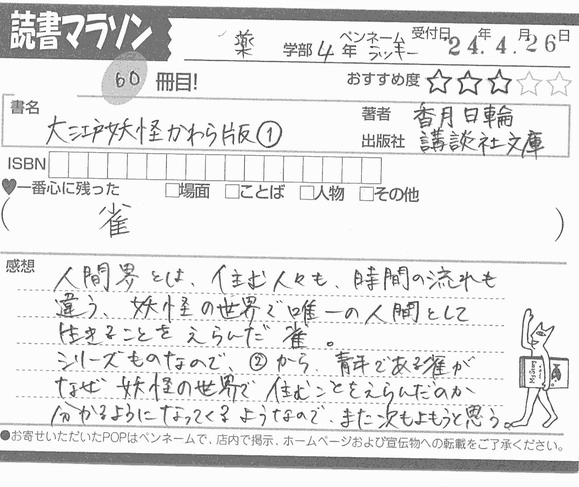 読書マラソン
薬 学部 4 年 ペンネーム ラッキー 受付日 24年 4月 26日
60 冊目! おすすめ度 ☆☆☆☆☆
書名 大江戸妖怪かわら版①
著者 香月日輪
出版社 講談社文庫
ISBN
♥一番心に残った □場面 □ことば □人物 □その他
( 雀 )
感想
人間界とは、住む人々も、時間の流れも
違う、妖怪の世界で唯一の人間として
生きることをえらんだ 雀。
シリーズものなので、②から、青年である雀が
なぜ 妖怪の世界で 住むことをえらんだのか
分かるようになってくるようなので、また次もよもうと思う。
●お寄せいただいたPOPはペンネームで、店内で掲示、ホームページおよび宣伝物への転載をご了承ください。